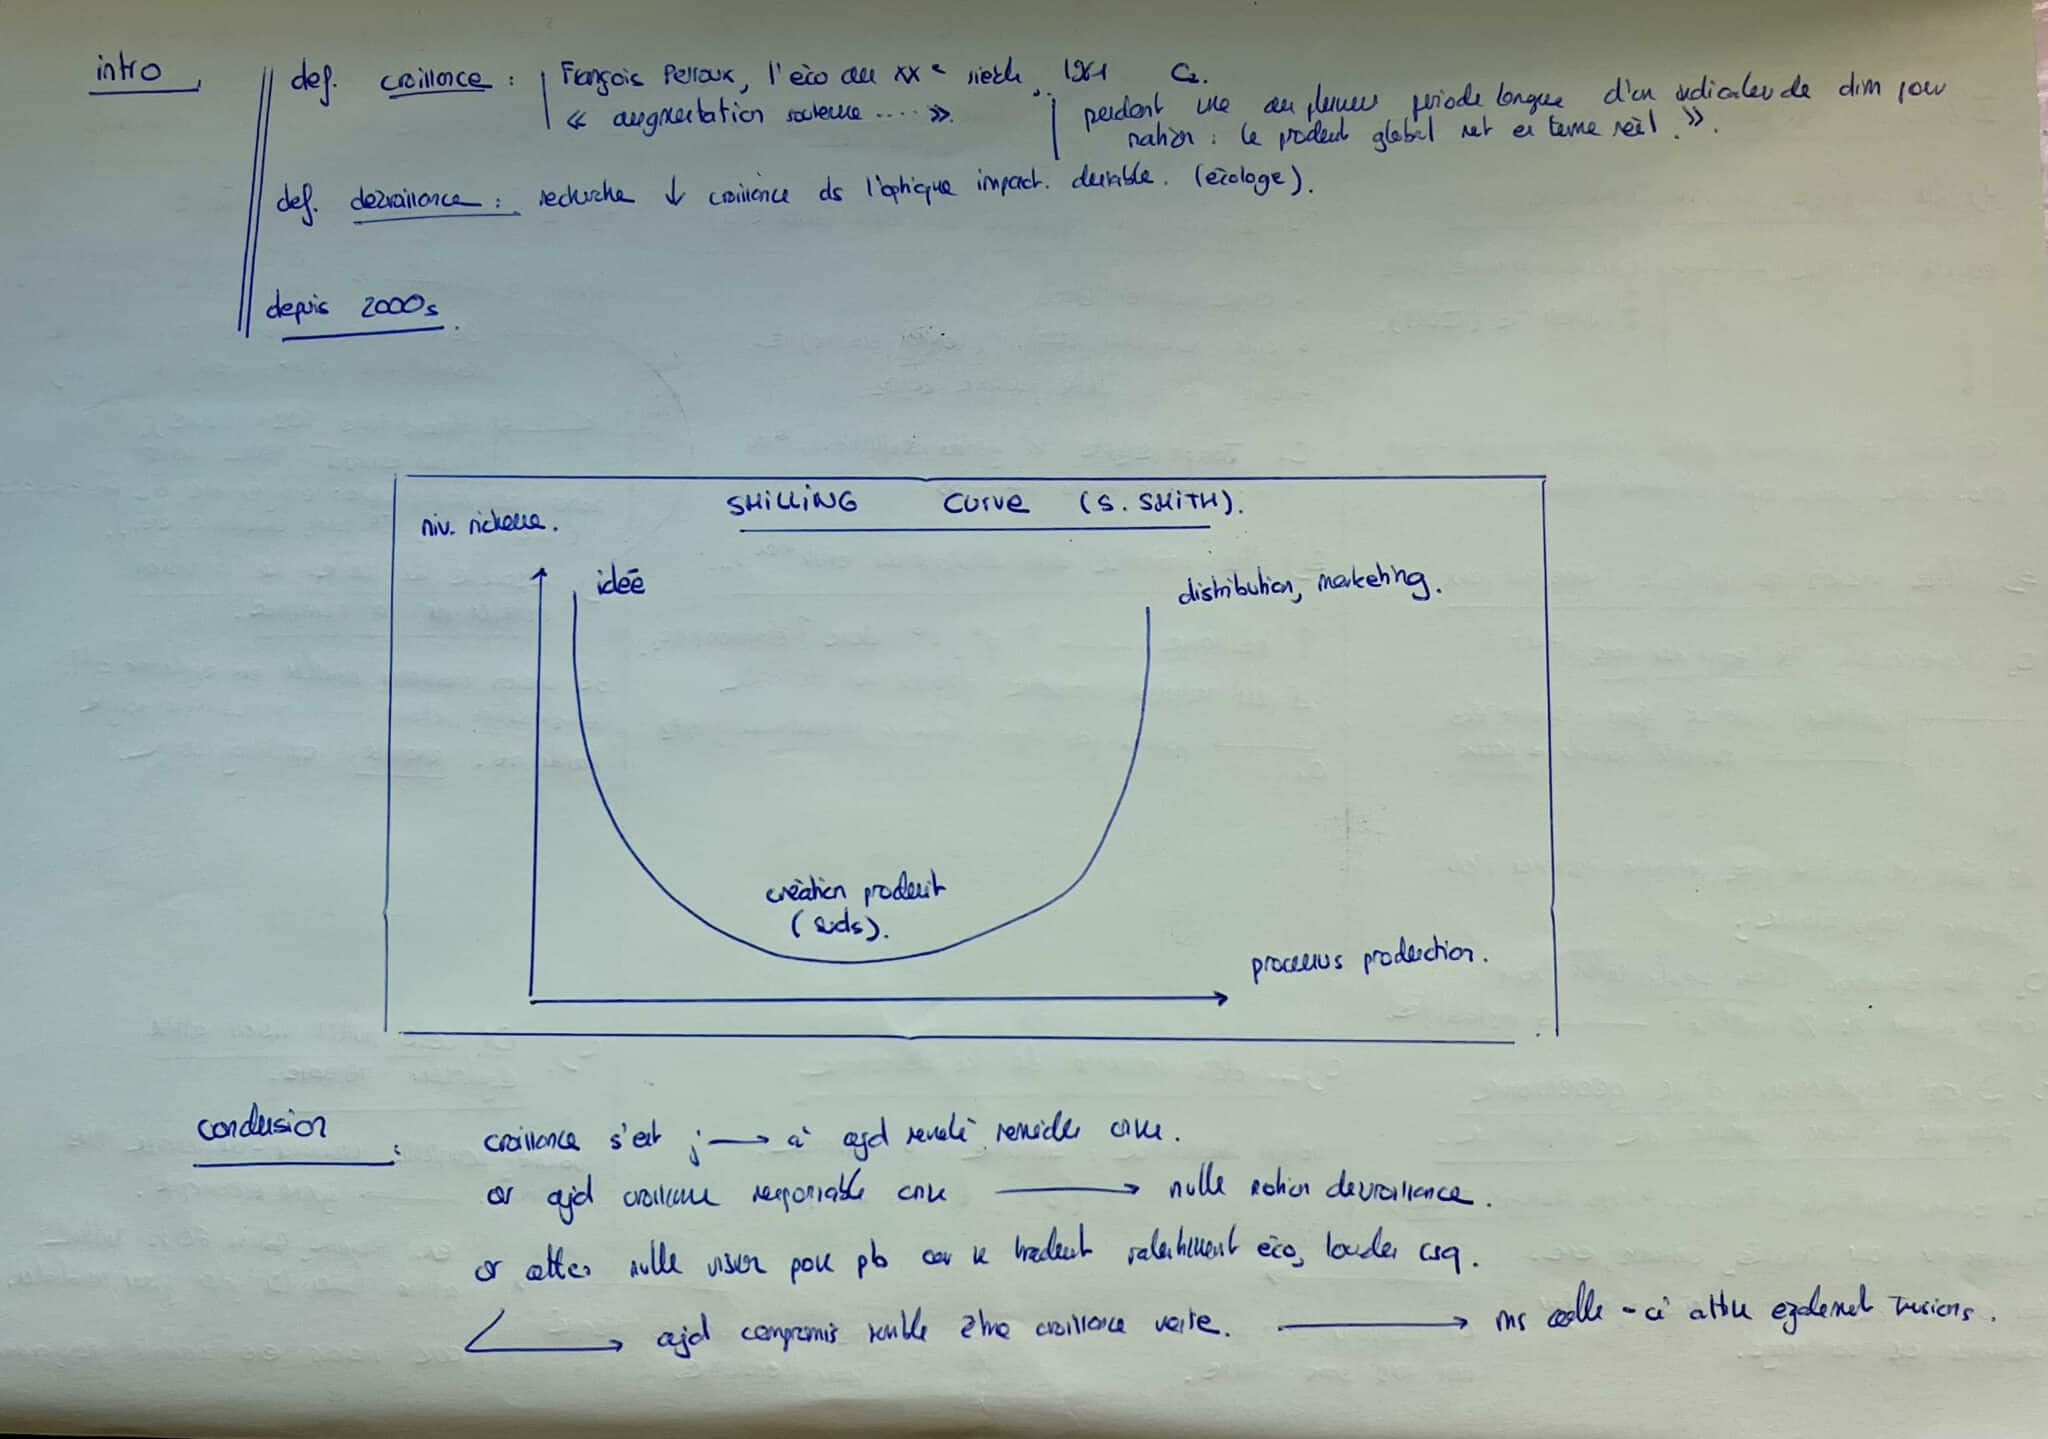 intro
def. croissance : François Perroux, l'éco du XXe siècle, 1961
« augmentation soutenue ..... ».
pendant une ou plusieurs période longue d'un indicateur de dim pour
nation : le produit global net en terme réel. ».
def. décroissance : recherche ↓ croissance ds l'optique impact. durable. (écologe).
depuis 2000s.
SMILLING CURVE (S. SMITH).
niv. richesse.
ideé
distribution, marketing.
création produit
(suds).
processus production.
conclusion : croissance s'est j → à ajd révélé remède crise.
or ajd croissance responsable crise → nvlle notion décroissance.
or attes nvlle vision pose pb car se traduit ralentissement éco, lourdes csq.
→ ajd compromis semble être croissance verte. → ms celle-ci attire également tensions.